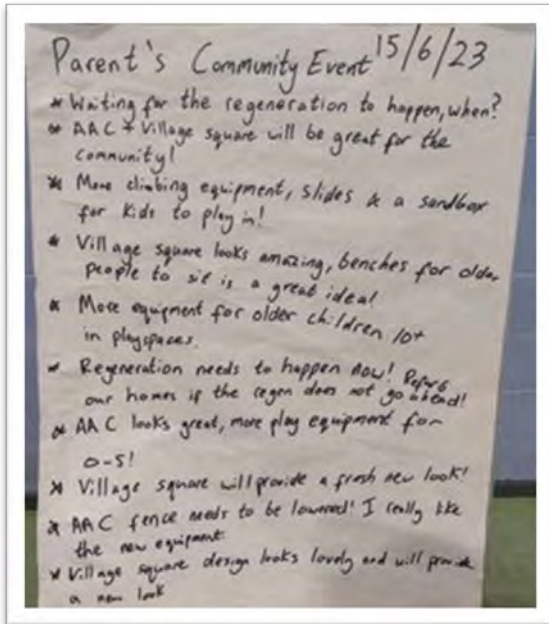 Parent's Community Event 15/6/23
* Waiting for the regeneration to happen, when?
* AAC + Village square will be great for the
community!
* More climbing equipment, slides & a sandbox
for kids to play in!
* Village square looks amazing, benches for older
people to sit is a great idea!
* More equipment for older children 10+
in playspaces.
* Regeneration needs to happen now! Refurb
our homes if the regen does not go ahead!
* AAC looks great, more play equipment for
0-5!
* Village square will provide a fresh new look!
* AAC fence needs to be lowered! I really like
the new equipment.
* Village square design looks lovely and will provide
a new look